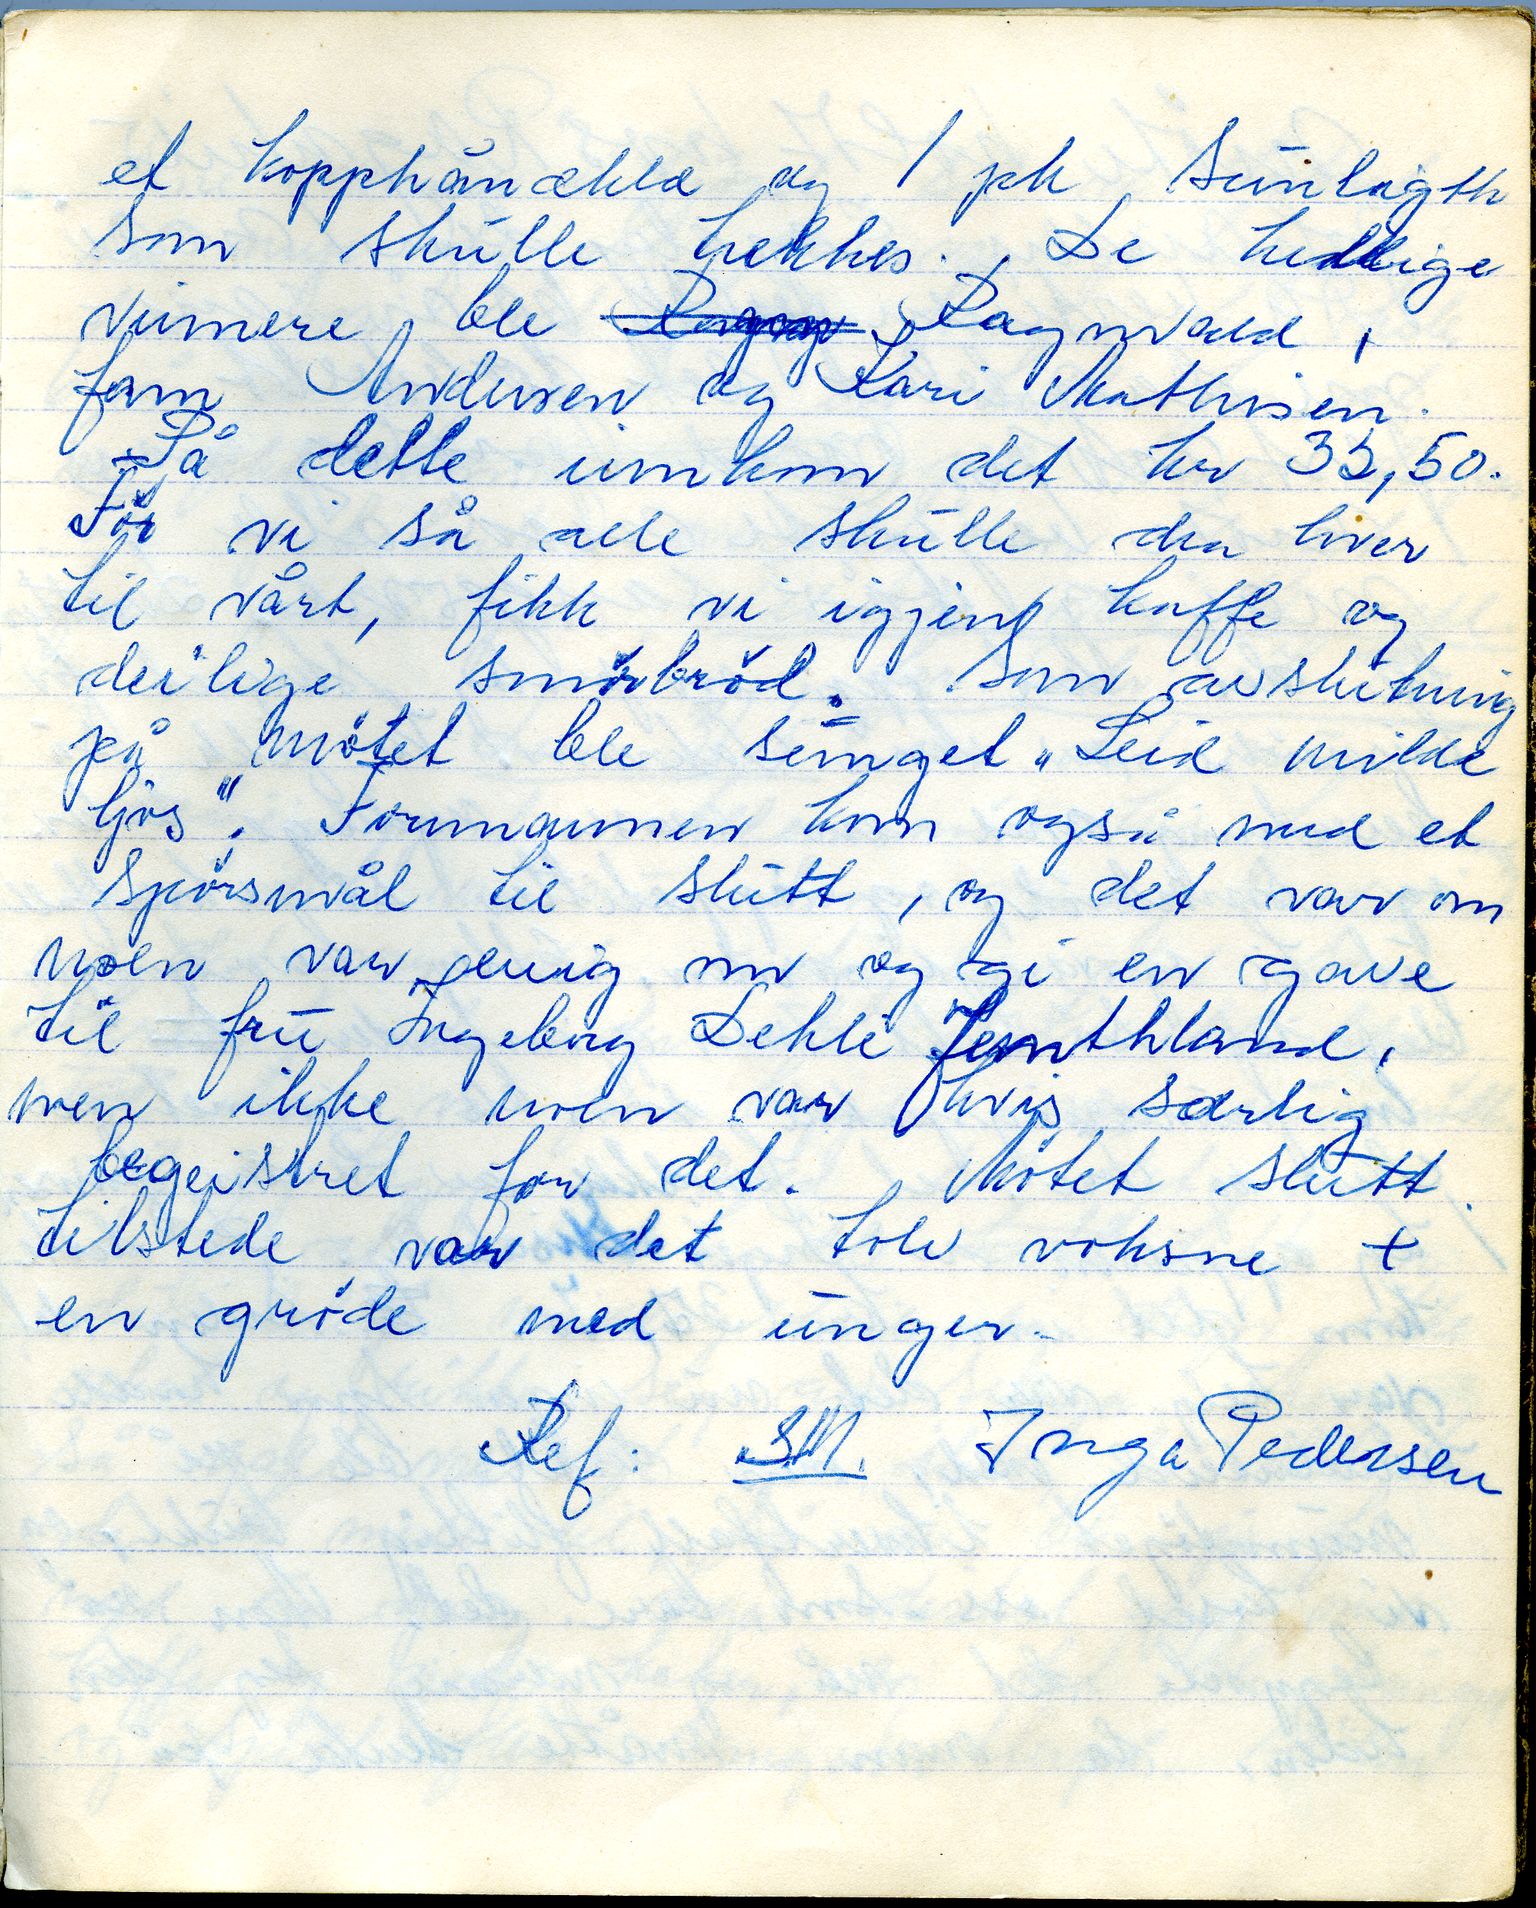 et kopphåndkle og 1 pk Sunlagth
som skulle trekkes. De heldige
vinnere ble Ragnvald,
fam Andersen og Kari Mathisen.
På dette innkom det kr 35,50.
Før vi så alle skulle dra hver
til vårt, fikk vi igjen kaffe og
deilige smørbrød. Som avslutning
på møtet ble sunget „Leid milde
ljos". Formannen kom også med et
spørsmål til slutt, og det var om
noen var enig om og gi en gave
til fru Ingeborg Dehli
men ikke noen var hvis særlig
begeistret for det. Møtet slutt.
tilstede var det tolv voksne +
en grøde med unger.
Ref: S.M. Inga Pedersen